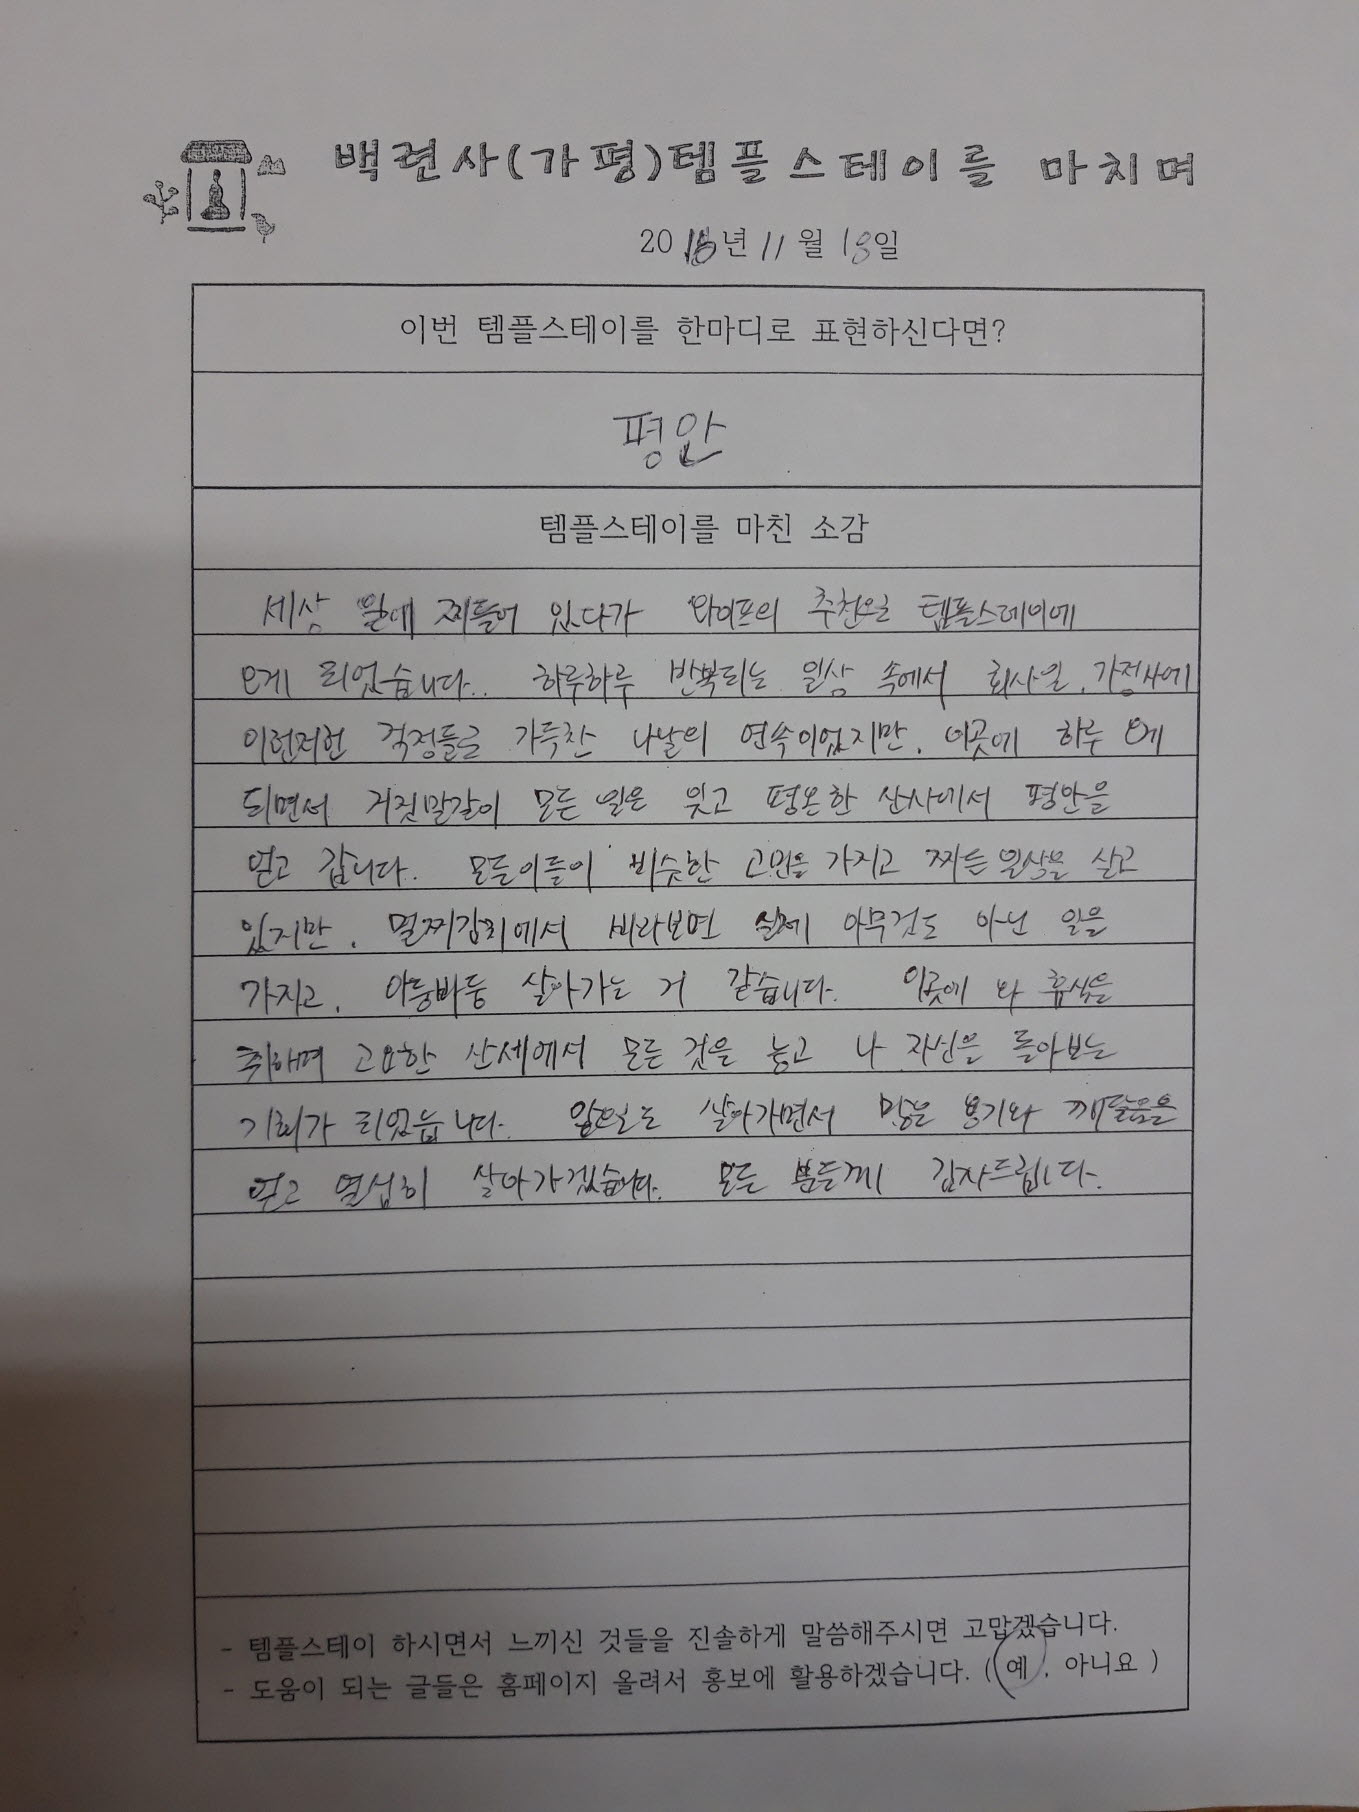 백련사(가평)템플스테이를 마치며
2018년 11월 18일
이번 템플스테이를 한마디로 표현하신다면?
평안
템플스테이를 마친 소감
세상 일에 찌들어 있다가 와이프의 추천으로 템플스테이에
오게 되었습니다.. 하루하루 반복되는 일상 속에서 회사일, 가정사에
이런저런 걱정들로 가득찬 나날의 연속이었지만, 이곳에 하루 오게
되면서 거짓말같이 모든 일은 잊고 평온한 산사에서 평안을
얻고 갑니다. 모든이들이 비슷한 고민을 가지고 찌든 일상을 살고
있지만, 멀찌감치에서 바라보면 실제 아무것도 아닌 일을
가지고, 아둥바둥 살아가는 거 같습니다. 이곳에 와 휴식을
취하며 고요한 산세에서 모든 것을 놓고 나 자신을 돌아보는
기회가 되었습니다. 앞으로도 살아가면서 많은 용기와 깨달음을
얻고 열심히 살아가겠습니다. 모든 분들께 감사드립니다.
- 템플스테이 하시면서 느끼신 것들을 진솔하게 말씀해주시면 고맙겠습니다.
- 도움이 되는 글들은 홈페이지 올려서 홍보에 활용하겠습니다. ( 예 , 아니요 )